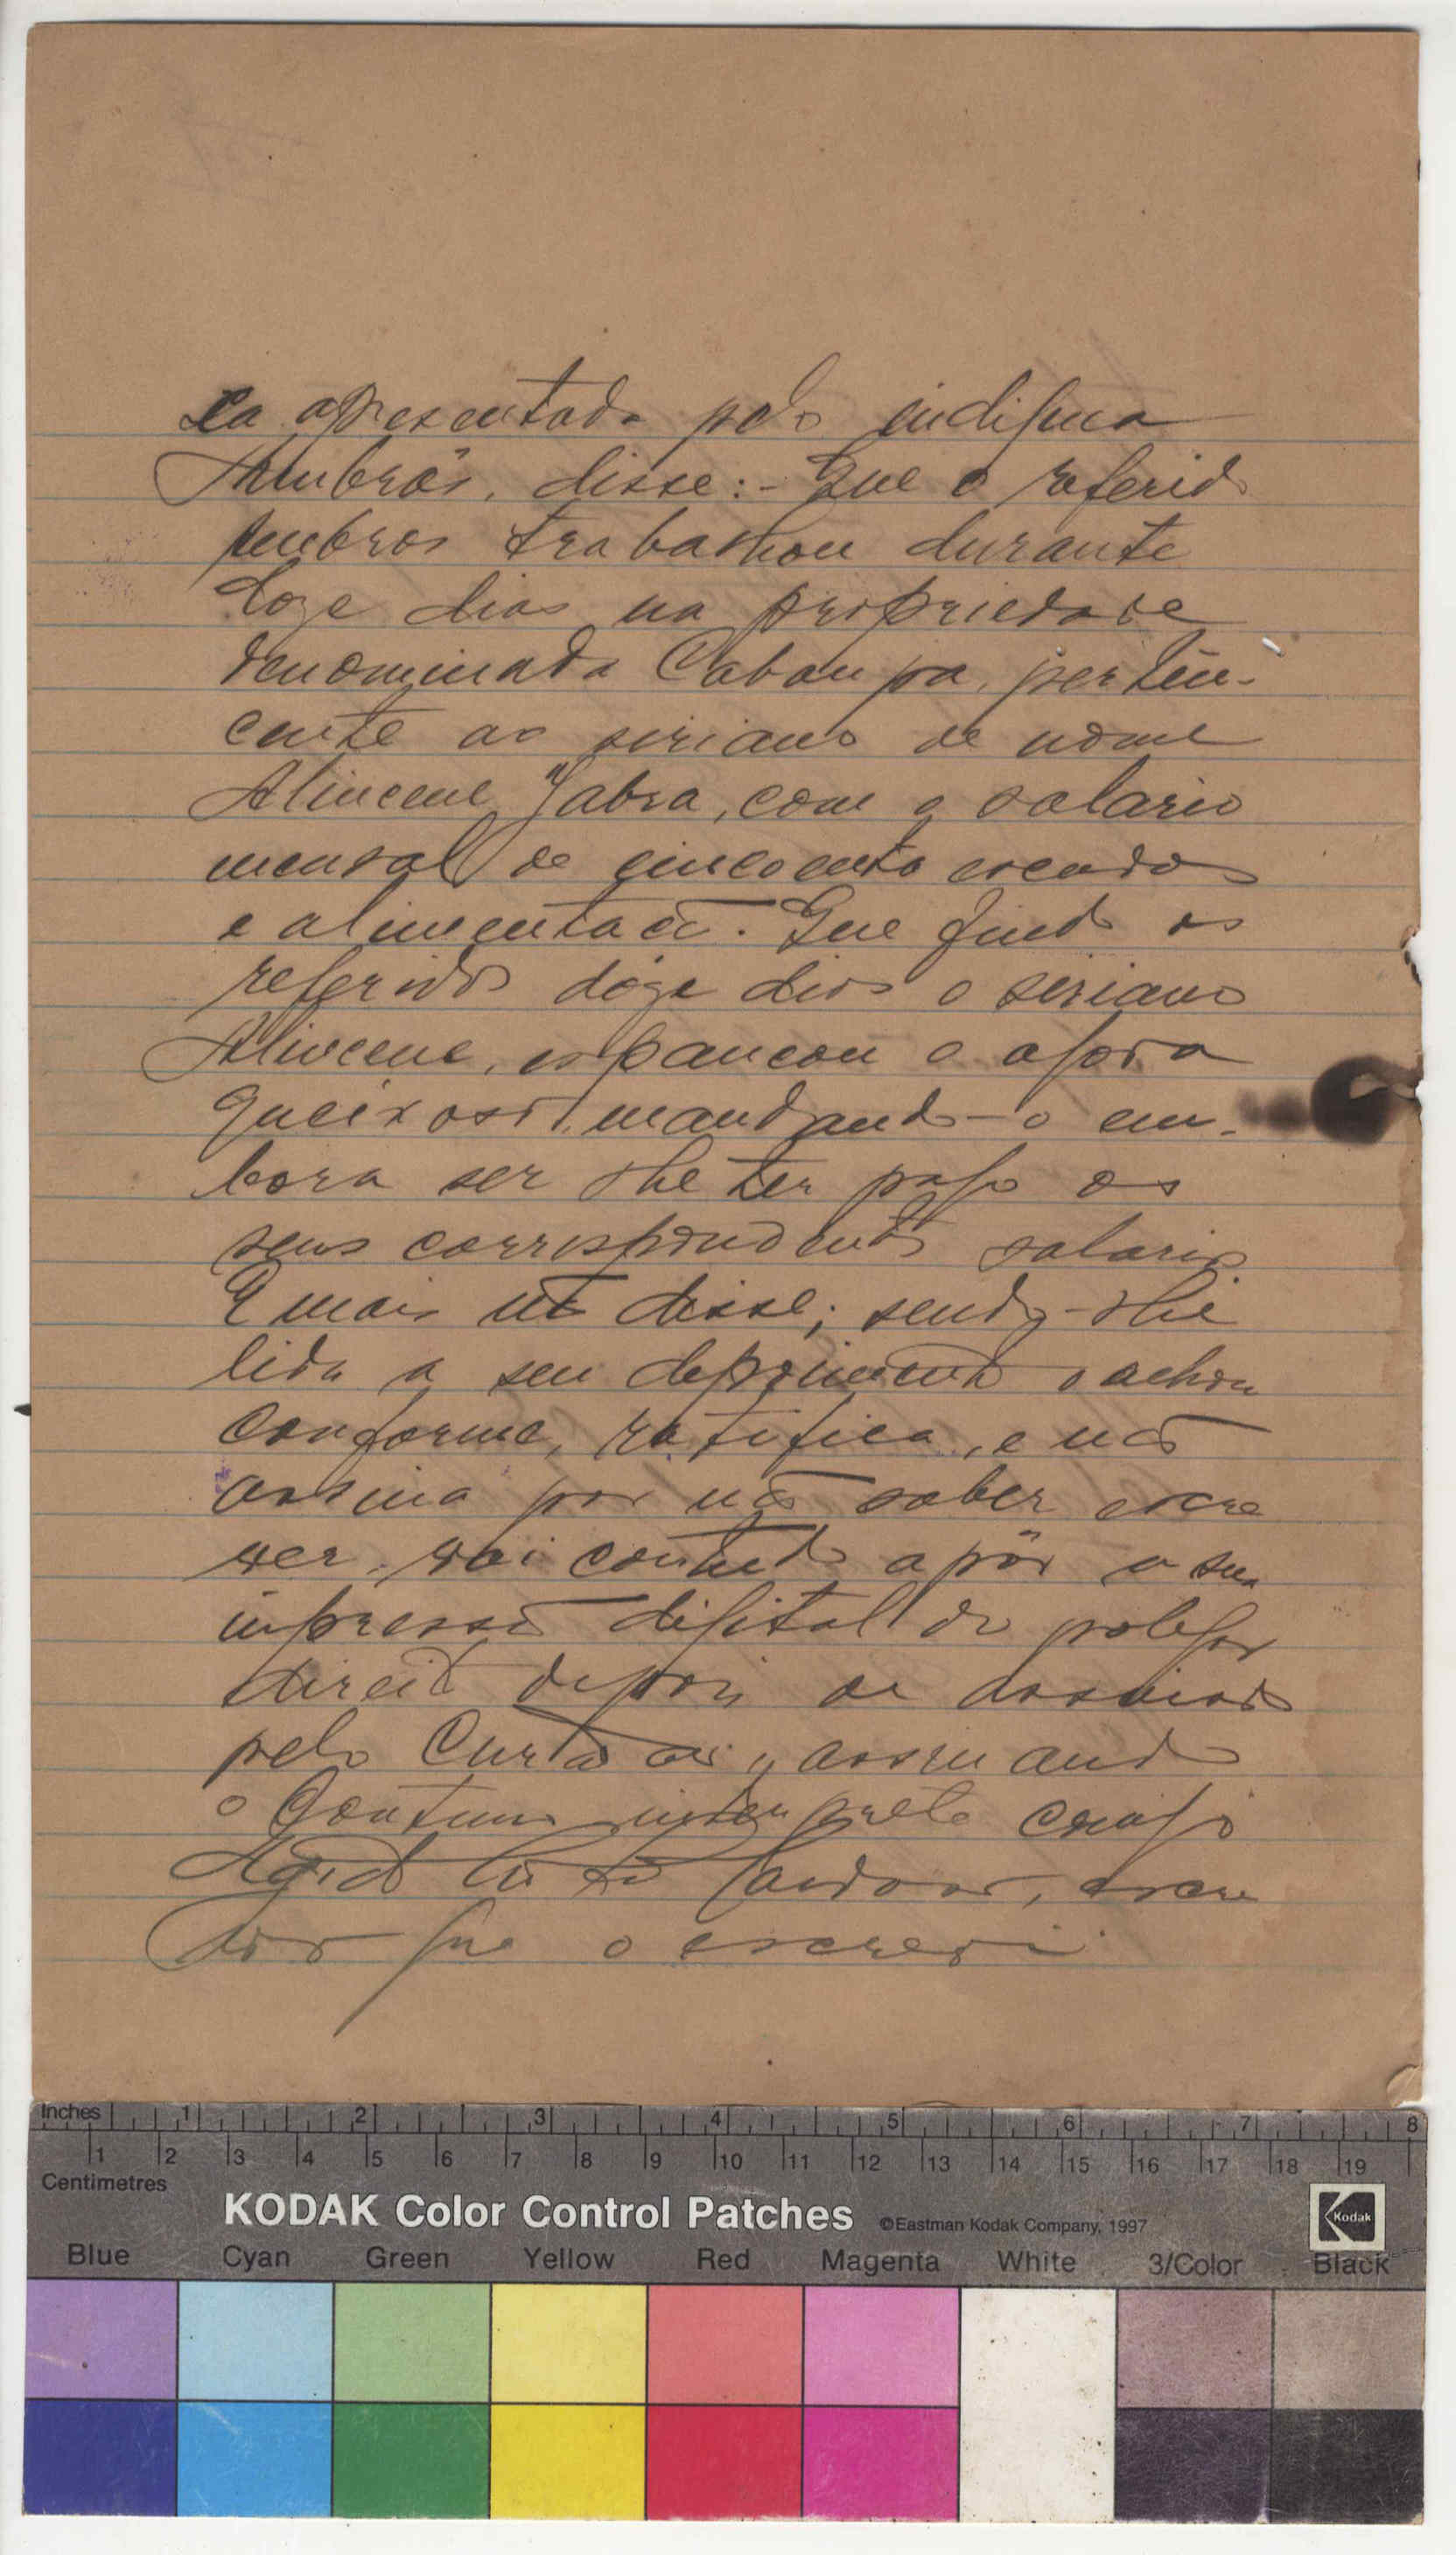 xa apresentada pelo indigena
Ambrós, disse:- Que o referido
Ambros trabalhou durante
doze dias na propriedade
denominada Cabanpa, perten-
cente ao siriano de nome
Alincene Jabra, com o salario
mensal de cincoenta escudos
e alimentacão. Que findo os
referidos dóze dias o siriano
Alincene, espancou o agora
queixoso, mandando-o em-
bora ser lhe ter pago os
seus correspondentes salarios.
E mais não disse; sendo-lhe
lido o seu depoimento o achou
conforme, ratifica, e não
assina por não saber escre
ver. vai contudo apôr a sua
impressão digital do polegar
direito depois de assinado
pelo Curador, assinando
o interprete comigo
escri
que o escrevi
Inches 1 2 3 4 5 6 7 8
1 2 3 4 5 6 7 8 9 10 11 12 13 14 15 16 17 18 19
Centimetres
KODAK Color Control Patches ©Eastman Kodak Company, 1997 Kodak
Blue Cyan Green Yellow Red Magenta White 3/Color Black